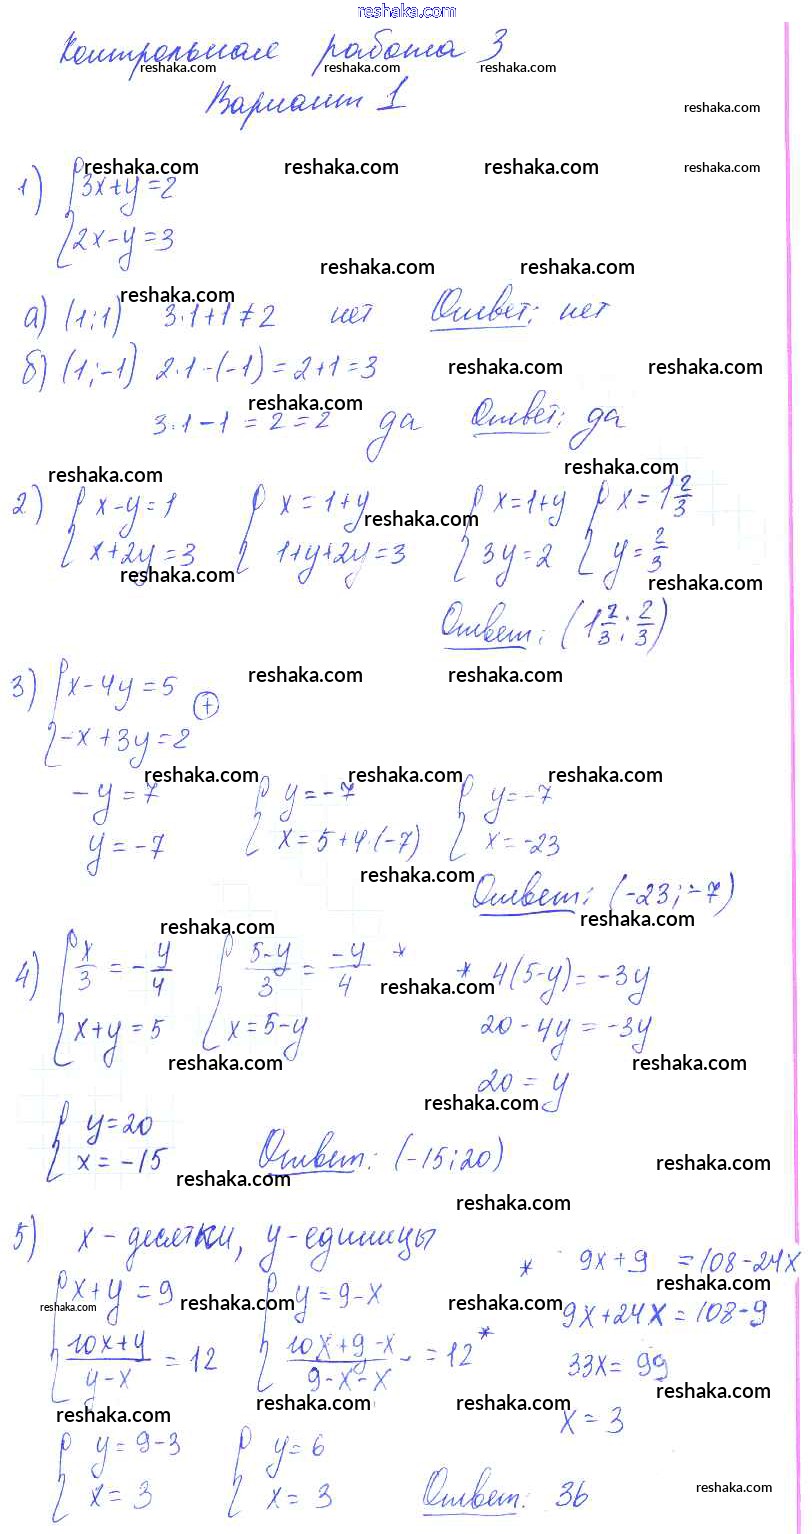 reshaka.com
Контрольная работа 3
reshaka.com reshaka.com reshaka.com
Вариант 1
reshaka.com
reshaka.com reshaka.com reshaka.com reshaka.com
1) { 3x+y=2
2x-y=3
reshaka.com reshaka.com
reshaka.com
а) (1;1) 3·1+1≠2 нет Ответ: нет
б) (1;-1) 2·1-(-1)=2+1=3
reshaka.com reshaka.com
reshaka.com
3·1-1=2=2 да Ответ: да
reshaka.com reshaka.com
2) { x-y=1 { x=1+y { x=1+y { x=1 2/3
reshaka.com
x+2y=3 1+y+2y=3 3y=2 y=2/3
reshaka.com reshaka.com
Ответ: (1 2/3; 2/3)
reshaka.com reshaka.com
3) { x-4y=5 (+)
-x+3y=2
reshaka.com reshaka.com reshaka.com
-y=7 { y=-7 { y=-7
y=-7 x=5+4·(-7) x=-23
reshaka.com
Ответ: (-23;-7)
reshaka.com reshaka.com
4) { x/3=-y/4 { (5-y)/3=-y/4 * * 4(5-y)=-3y
reshaka.com
x+y=5 x=5-y 20-4y=-3y
reshaka.com reshaka.com
20=y
reshaka.com
{ y=20
x=-15 Ответ: (-15;20)
reshaka.com reshaka.com
reshaka.com
5) x-десятки, y-единицы
* 9x+9 =108-24x
reshaka.com
{ x+y=9 { y=9-x
reshaka.com reshaka.com reshaka.com
9x+24x=108-9
(10x+y)/(y-x)=12 (10x+9-x)/(9-x-x)=12 * 33x=99
reshaka.com
reshaka.com reshaka.com reshaka.com
x=3
{ y=9-3 { y=6
x=3 x=3 Ответ: 36
reshaka.com